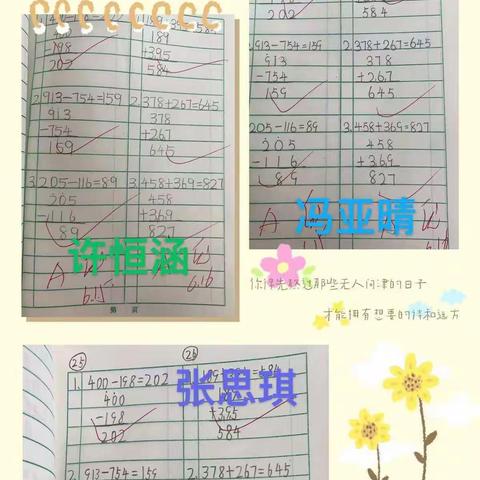 1.400-198=202
400
-198
202
1.189+395=584
189
+395
584
2.913-754=159
913
-754
159
2.378+267=645
378
+267
645
3.205-116=89
205
-116
89
3.458+369=827
458
+369
827
许恒涵
A
6.15
6.16
第 页
202
584
.913-754=159
913
-754
159
2.378+267=645
378
+267
645
205-116=89
205
-116
89
3.458+369=827
458
+369
827
A
冯亚晴
你得先熬过那些无人问津的日子
才能拥有想要的诗和远方
25
26
1.400-198=202
400
-198
202
张思琪
+395
584
2.913-754=159
2.378+267=645